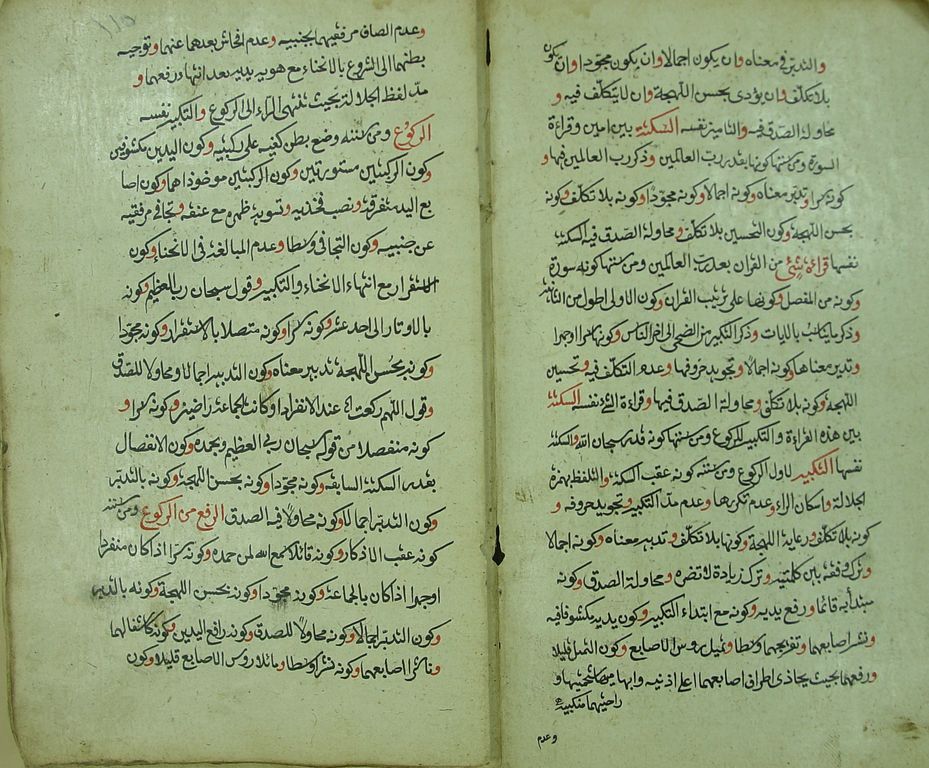 والتدبر في معناه وان يكون اجمالا وان يكون مجودا وان يكون
بلا تكلف وان يؤدى بحسن اللهجة وان لا يتكلف فيه و
محاولة الصدق فيه والتامين نفسه السكتة بين امين وقراءة
السورة ومن سننها كونها بقدر رب العالمين وذكر رب العالمين فيها و
كونه سرا وتدبر معناه وكونه اجمالا وكونه مجودا وكونه بلا تكلف وكونه
بحسن اللهجة وكون التحسين بلا تكلف ومحاولة الصدق فيه السكتة
نفسها قراءة شئ من القران بعد رب العالمين ومن سننها كونه سورة
وكونه من المفصل وكونها على ترتيب القران وكون الاولى اطول من الثانية
وذكر ما يناسب بالايات وذكر التكبير من الضحى الى اخر الناس وكونها سرا او جهرا
وتدبر معناها وكونه اجمالا وتجويد حروفها وعدم التكلف فيه وتحسين
اللهجة وكونه بلا تكلف ومحاولة الصدق فيها وقراءة نفسه السكتة
بين هذه القراءة والتكبير للركوع ومن سننها كونه قدر سبحان الله والسكتة
نفسها التكبير لاول الركوع ومن سننه كونه عقب السكتة والتلفظ بهمزة
الجلالة واسكان الراء وعدم تكررها وعدم مد التكبير وتجويد حروفه و
كونه بلا تكلف ورعاية اللهجة وكونها بلا تكلف وتدبير معناه وكونه اجمالا
وترك وقفه بين كلمتيه وترك زيادة لا تضره ومحاولة الصدق وكونه
مبتدأ به قائما ورفع يديه وكونه مع ابتداء التكبير وكون يديه مكشوفا فيه
ونشر اصابعهما وتفريجهما وسطا وتميل روس الاصابع وكون التميل قليلا
ورفعهما بحيث يحاذى اطراف اصابعهما اعلى اذنيه وابهاميه شحمتيها و
راحتيهما منكبيه
وعدم
وعدم الصاق مرفقيهما بجنبيه وعدم افحاش بعدهما عنهما وتوجيه
بطنهما الى الشروع بالانحناء مع هويه يديه بعد انتهاء رفعهما و
مد لفظ الجلالة بحيث تنتهى الراء الى الركوع والتكبير نفسه
الركوع ومن سننه وضع بطن كفيه على ركبتيه وكون اليدين مكشوفين
وكون الركبتين مستورتين وكون الركبتين موضوعاهما وكون اصا
بع اليد متفرقة ونصب فخذيه وتسوية ظهره مع عنقه وتجافى مرفقيه
عن جنبيه وكون التجافى وسطا وعدم المبالغة فى الانحناء وكون
الاستقرار مع انتهاء الانحناء والتكبير وقول سبحان رب العظيم وكونه
بالاوتار الى احد عشر وكونه سرا وكونه متصلا بالاستقرار وكونه مجودا
وكونه بحسن اللهجة تدبير معناه وكون التدبير اجمالا ومحاولا للصدق
وقول اللهم ركعت عند الانفراد او كانت الجماعة راضين وكونه سرا و
كونه منفصلا من قوله سبحان ربى العظيم وبحمده وكون الانفصال
بقدر السكتة السابقة وكونه مجودا وكونه بحسن اللهجة وكونه بالتدبر
وكون التدبر اجمالا وكونه محاولا فيه الصدق الرفع من الركوع ومن سننه
كونه عقب الاذكار وكونه قائلا سمع الله لمن حمده وكونه سرا اذا كان منفردا
اوجهرا اذا كان بالجماعة وكونه مجودا وكونه بحسن اللهجة وكونه بالتدبر
وكون التدبر اجمالا وكونه محاولا للصدق وكونه رافع اليدين وكونه كاشفا لهما
وناشرا اصابعهما وكونه نشرا وسطا ومائلا روس الاصابع قليلا وكون